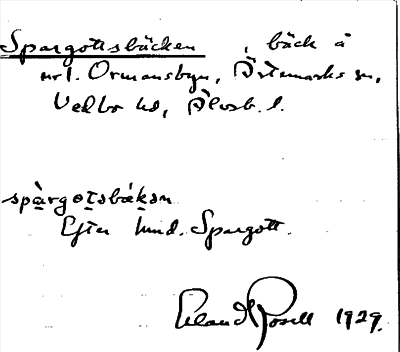 Spargottsbäcken, bäck å
nrl. Ormansbyn, Ärtemarks sn,
Vedbo hd, Älvsb. l.
spàrgotsbäkən
Efter hmd. Spargott.
Erland Rosell 1929.